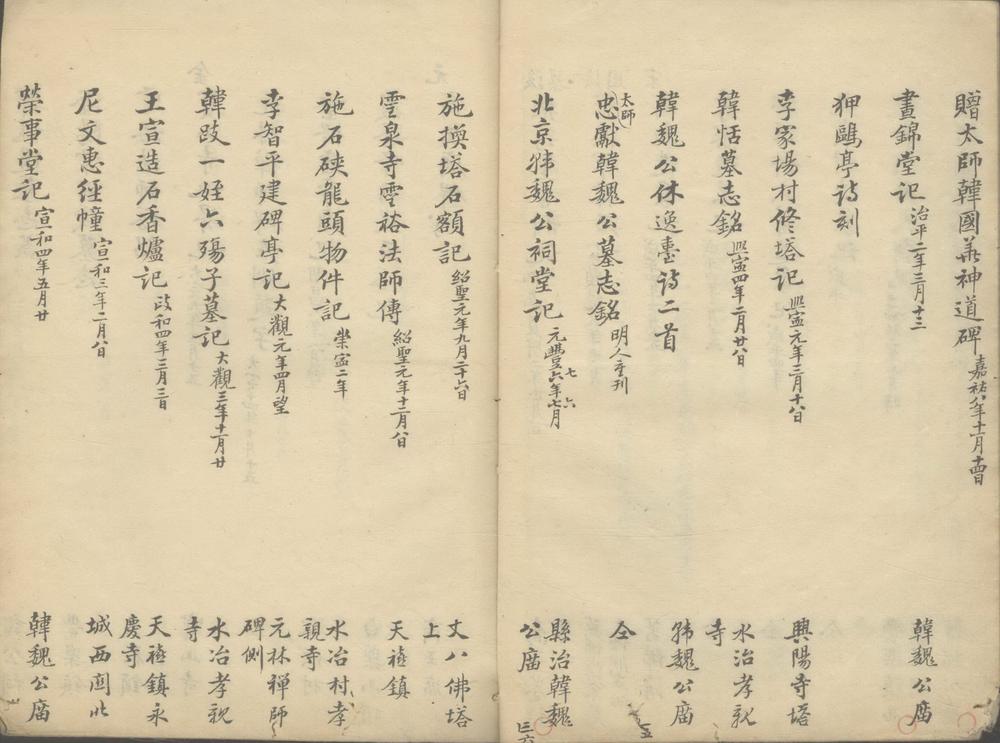 贈太師韓國華神道碑 嘉祐八年十一月十四日
晝錦堂記 治平二年三月十三 韓魏公庿
狎鷗亭詩刻
李家場村修塔記 熙寍元年三月十八日 興陽寺塔
韓恬墓志銘 熙寍四年二月廿八日 水冶孝親寺
韓魏公休逸臺詩二首 韩魏公庿
太師
忠獻韓魏公墓志銘 明人重刊 仝
北京韩魏公祠堂記 元豐六年七月 縣治韓魏公庿
七 六
施換塔石額記 紹聖元年九月二十六日 丈八佛塔上
雲泉寺雲裕法師傳 紹聖元年十二月八日 天禧鎮
施石硤龍頭物件記 崇寍二年 水冶村孝親寺
李智平建碑亭記 大觀元年四月望 元林禪師碑側
韓跂一姪六殤子墓記 大觀三年十一月廿 水冶孝親寺
王宣造石香爐記 政和四年三月三日 天禧鎮永慶寺
尼文惠經幢 宣和三年二月八日 城西
榮事堂記 宣和四年五月廿 韓魏公庿